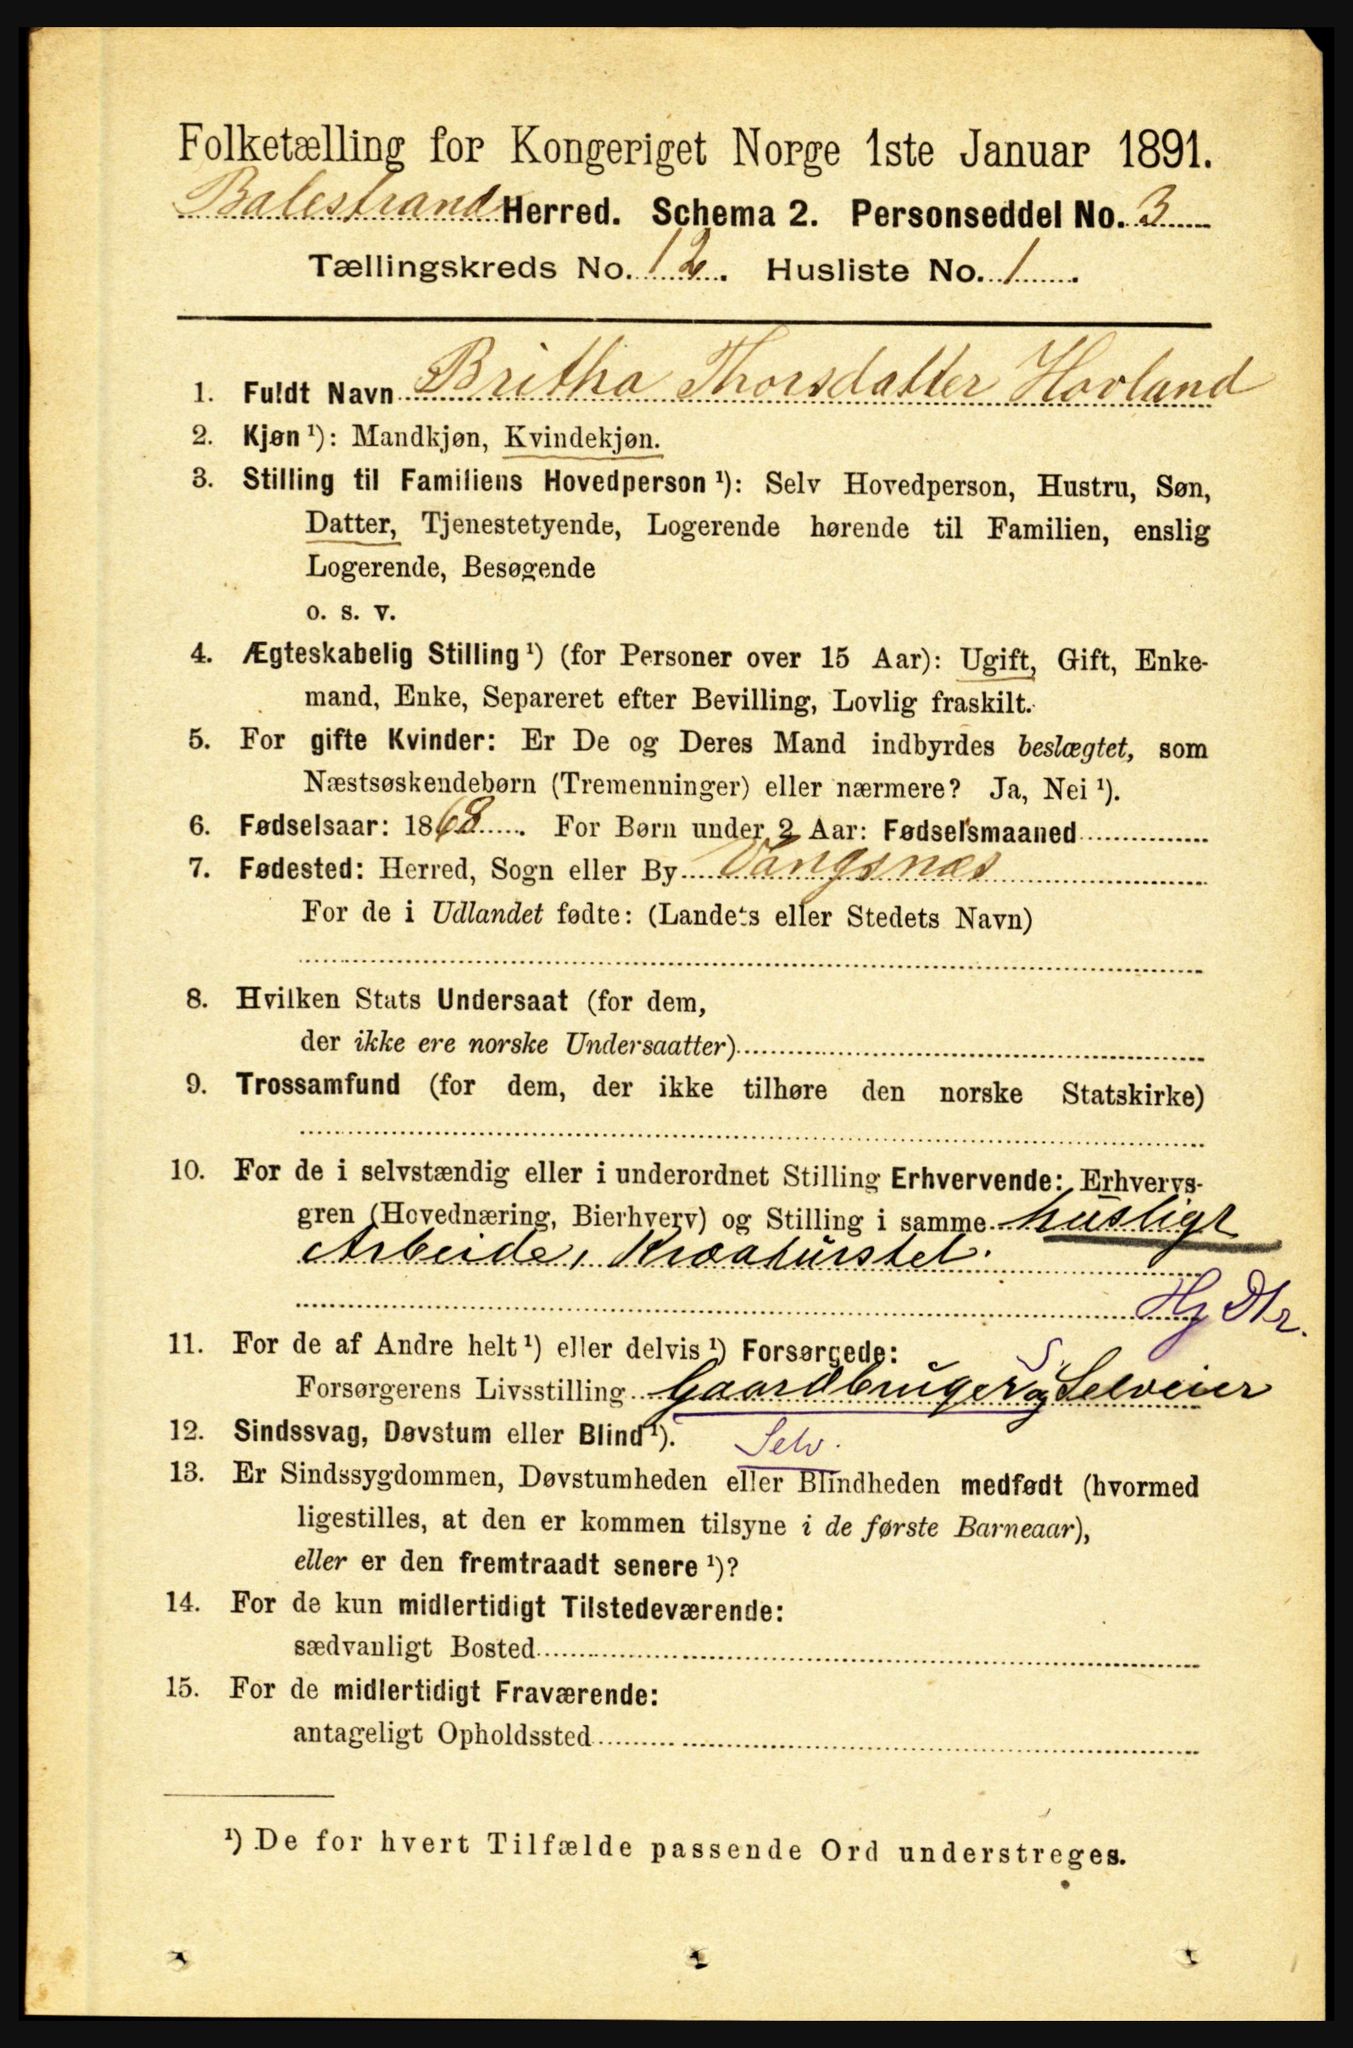 Folketælling for Kongeriget Norge 1ste Januar 1891.
Balestrand Herred. Schema 2. Personseddel No. 3
Tællingskreds No. 12. Husliste No. 1.
1. Fuldt Navn Britha Thorsdatter Hovland
2. Kjøn ¹): Mandkjøn, Kvindekjøn.
3. Stilling til Familiens Hovedperson ¹): Selv Hovedperson, Hustru, Søn,
Datter, Tjenestetyende, Logerende hørende til Familien, enslig
Logerende, Besøgende
o. s. v.
4. Ægteskabelig Stilling ¹) (for Personer over 15 Aar): Ugift, Gift, Enke-
mand, Enke, Separeret efter Bevilling, Lovlig fraskilt.
5. For gifte Kvinder: Er De og Deres Mand indbyrdes beslægtet, som
Næstsøskendebørn (Tremenninger) eller nærmere? Ja, Nei ¹).
6. Fødselsaar: 1868. For Børn under 2 Aar: Fødselsmaaned
7. Fødested: Herred, Sogn eller By Vangsnæs
For de i Udlandet fødte: (Landets eller Stedets Navn)
8. Hvilken Stats Undersaat (for dem,
der ikke ere norske Undersaatter)
9. Trossamfund (for dem, der ikke tilhøre den norske Statskirke)
10. For de i selvstændig eller i underordnet Stilling Erhvervende: Erhvervs-
gren (Hovednæring, Bierhverv) og Stilling i samme husligt
Arbeide, Kreaturstel.
Hj Dtr.
11. For de af Andre helt ¹) eller delvis ¹) Forsørgede:
S.
Forsørgerens Livsstilling Gaardbruger og Selveier
12. Sindssvag, Døvstum eller Blind ¹). Selv.
13. Er Sindssygdommen, Døvstumheden eller Blindheden medfødt (hvormed
ligestilles, at den er kommen tilsyne i de første Barneaar),
eller er den fremtraadt senere ¹)?
14. For de kun midlertidigt Tilstedeværende:
sædvanligt Bosted
15. For de midlertidigt Fraværende:
antageligt Opholdssted
¹) De for hvert Tilfælde passende Ord understreges.